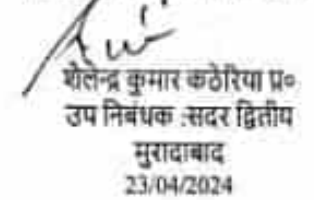 शैलेन्द्र कुमार कठेरिया प्र०
उप निबंधक :सदर द्वितीय
मुरादाबाद
23/04/2024